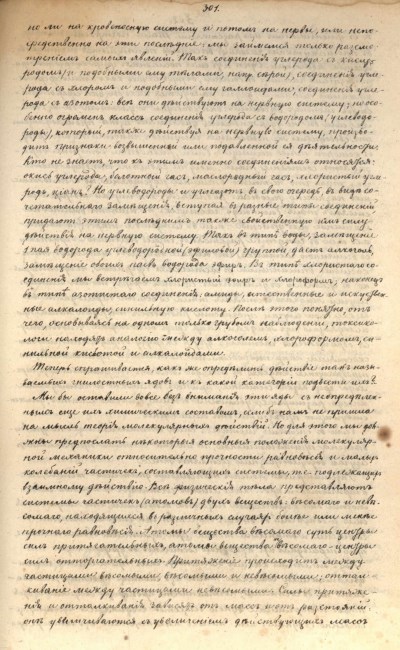 301.
но ли на кровеносную систему и потомъ на нервы, или непо-
средственно на эти послѣдніе: мы займемся только разсмо-
трѣніемъ самихъ явленій. Такъ соединенія углерода съ кисло-
родомъ (и подобными ему тѣлами, напр. сѣрою), соединенія угле-
рода съ хлоромъ и подобными ему галлоидами, соединенія угле-
рода съ азотомъ: всѣ они дѣйствуютъ на нервную систему; но осо-
бенно огроменъ классъ соединеній углерода съ водородомъ (углеводо-
роды), который, также дѣйствуя на нервную систему, произво-
дитъ признаки возвышенной или подавленной ея дѣятельности.
Кто не знаетъ, что къ этимъ именно соединеніямъ относятся:
окись углерода, болотный газъ, маслородный газъ, хлористый угле-
родъ, ціанъ? Но углеводороды и углеазотъ въ свою очередь, въ видѣ со-
ставныхъ замѣщеній, вступая въ разные типы соединеній
придаютъ этимъ послѣднимъ также свойственную имъ силу
дѣйствія на нервную систему. Такъ въ типѣ воды, замѣщеніе
1 пая водорода углеводородной (эфиловой) группой, даетъ алкоголь,
замѣщеніе обоихъ паевъ водорода эфиръ. Въ типѣ хлористаго со-
единенія мы встрѣчаемъ хлористый эфиръ и хлороформъ; наконецъ
въ типѣ азотистаго соединенія: амиды, естественные и искуствен-
ные алкалоиды, синильную кислоту. Послѣ этого понятно, отъ
чего, основываясь на одномъ только грубомъ наблюденіи, токсико-
логи находятъ аналогію между алкоголемъ, хлороформомъ, си-
нильной кислотой и алкалоидами.
Теперь спрашивается, какъ же опредѣлить дѣйствіе такъ назы-
ваемыхъ гнилостныхъ ядовъ и къ какой категоріи подвести ихъ?
Мы бы оставили вовсе безъ вниманія эти яды съ неопредѣлен-
нымъ еще ихъ химическимъ составомъ, еслибъ намъ не пришла
на мысль теорія молекулярныхъ дѣйствій. Но для этого мы дол-
жны предпослать нѣкоторыя основныя положенія молекуляр-
ной механики относительно прочности равновѣсія и малыхъ
колебаній частичекъ, составляющихъ системы, т.е. подлежащихъ
взаимному дѣйствію. Всѣ физическія тѣла представляютъ
системы частичекъ (атомовъ) двухъ веществъ: вѣсомаго и невѣ-
сомаго, находящіяся въ различныхъ случаяхъ болѣе или менѣе
прочнаго равновѣсія. Атомы вещества вѣсомаго суть центры
силъ притягательныхъ, атомы вещества невѣсомаго - центры
силъ отторгательныхъ. Притяженіе происходитъ между
частицами вѣсомыми, вѣсомыми и невѣсомыми; оттал-
киваніе между частицами невѣсомыми. Силы притяже-
нія и отталкиванія зависятъ отъ массъ и отъ разстояній:
онѣ увеличиваются съ увеличеніемъ дѣйствующихъ массъ